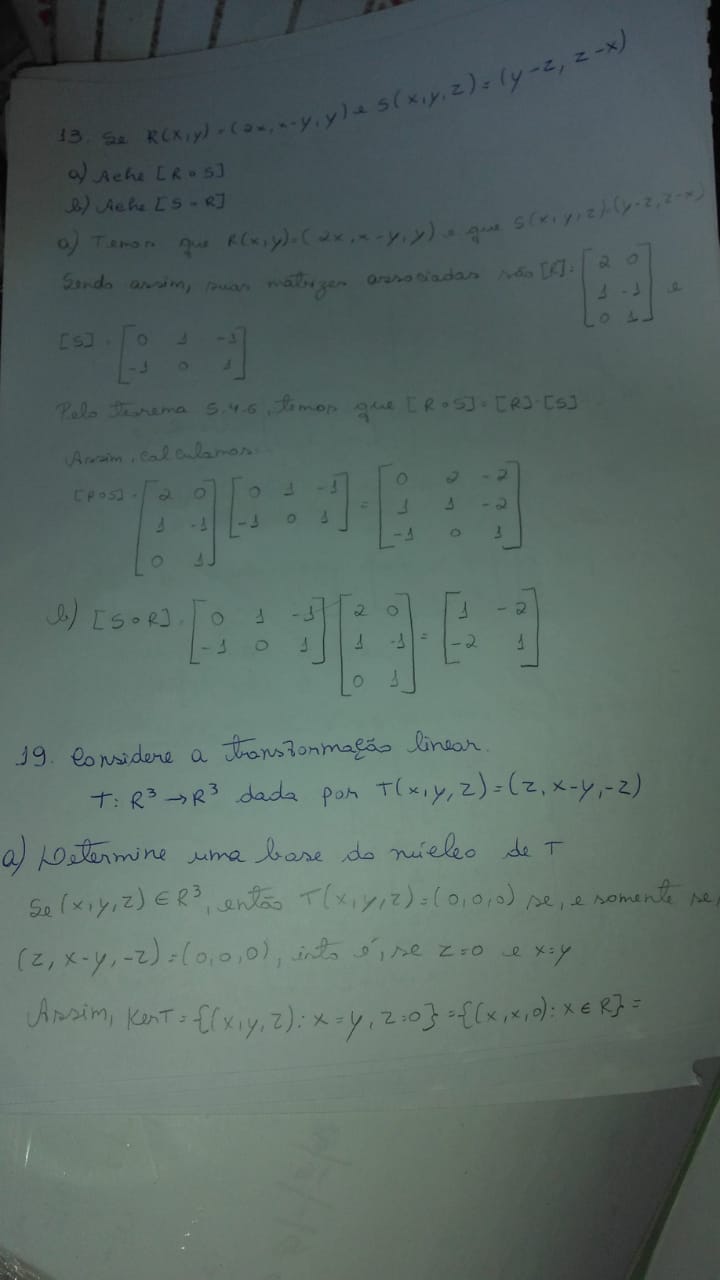 13. Se R(x,y)=(2x,x-y,y) e S(x,y,z)=(y-z, z-x)
a) Ache [R∘S]
b) Ache [S∘R]
a) Temos que R(x,y)=(2x,x-y,y) e que S(x,y,z)=(y-z,z-x)
Sendo assim, suas matrizes associadas são [R]=[2 0; 1 -1; 0 1] e
[S]=[0 1 -1; -1 0 1]
Pelo teorema 5.4.6, temos que [R∘S]=[R]·[S]
Assim, calculamos:
[R∘S]=[2 0; 1 -1; 0 1][0 1 -1; -1 0 1]=[0 2 -2; 1 1 -2; -1 0 1]
b) [S∘R]=[0 1 -1; -1 0 1][2 0; 1 -1; 0 1]=[1 -2; -2 1]
19. Considere a transformação linear.
T: R³→R³ dada por T(x,y,z)=(z,x-y,-z)
a) Determine uma base do núcleo de T
Se (x,y,z)∈R³, então T(x,y,z)=(0,0,0) se, e somente se,
(z,x-y,-z)=(0,0,0), isto é, se z=0 e x=y
Assim, KerT={(x,y,z):x=y,z=0}={(x,x,0):x∈R}=